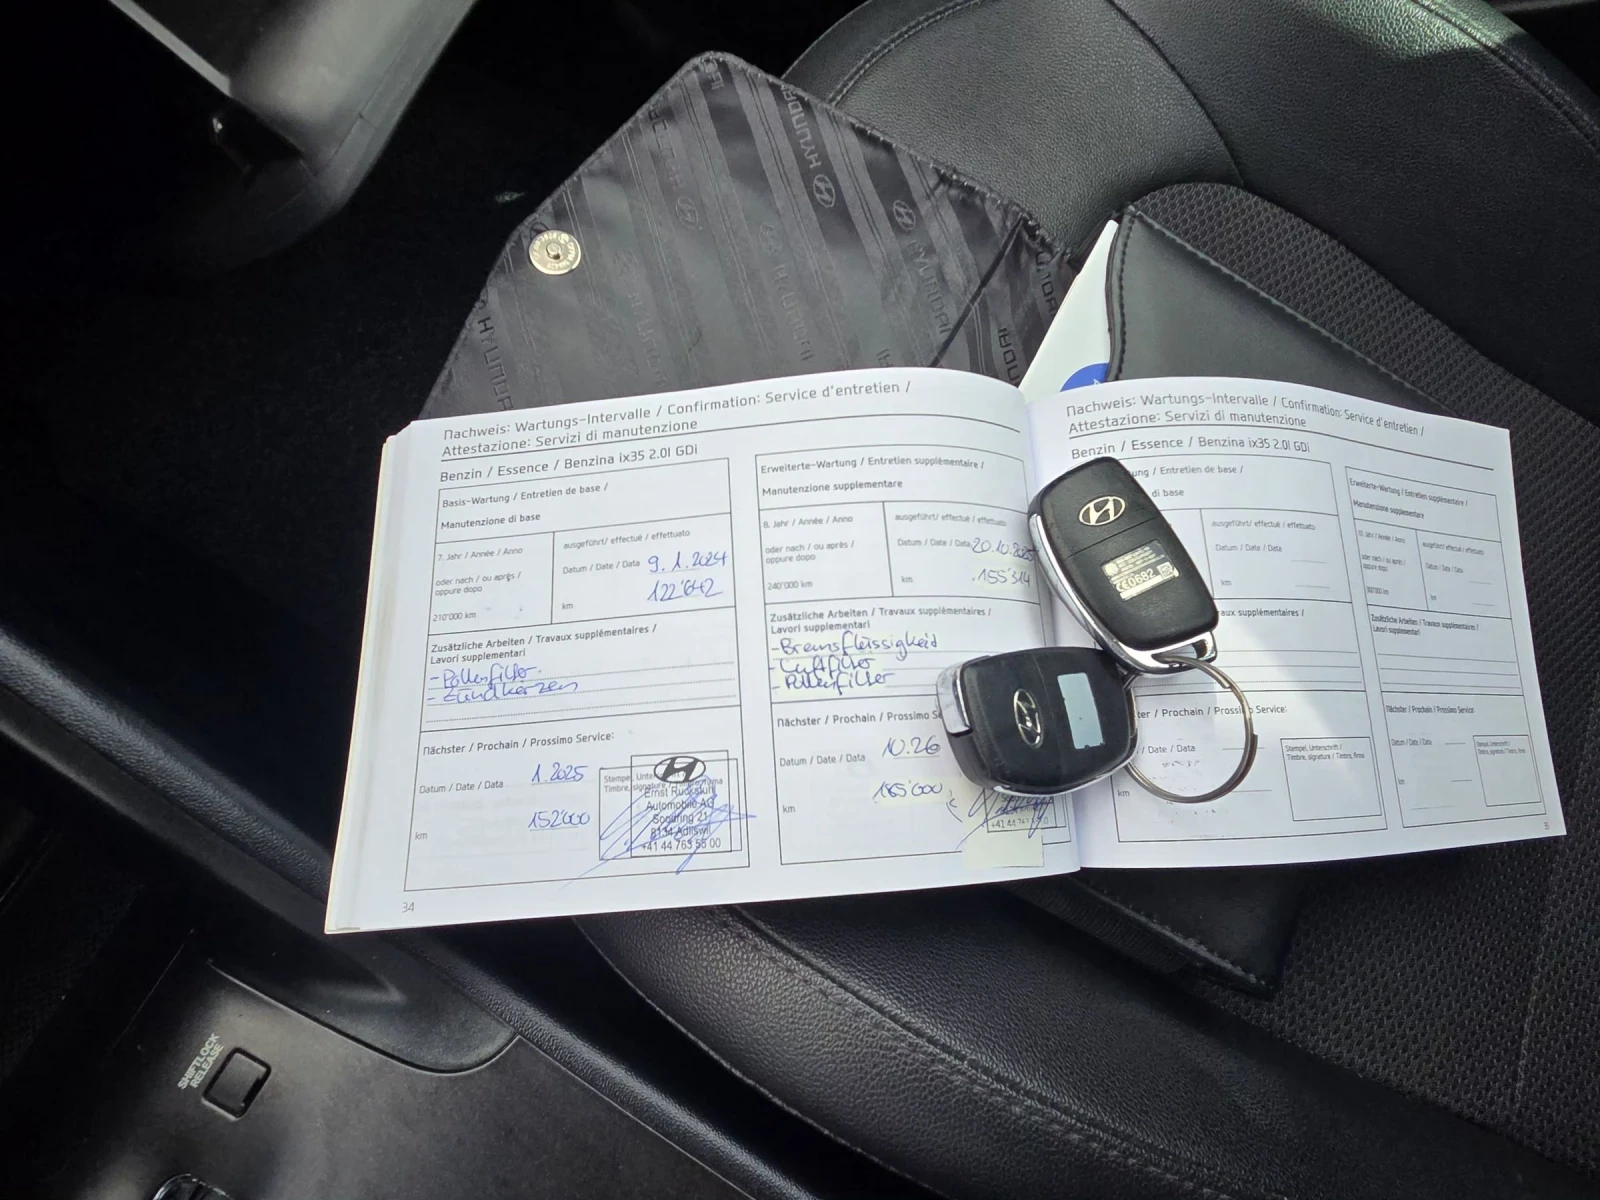 HYUNDAI
HYUNDAI
HYUNDAI
Nachweis: Wartungs-Intervalle / Confirmation: Service d'entretien /
Attestazione: Servizi di manutenzione
Benzin / Essence / Benzina ix35 2.0l GDi
Basis-Wartung / Entretien de base /
Manutenzione di base
7. Jahr / Année / Anno
oder nach / ou après /
oppure dopo
210'000 km
ausgeführt/ effectué / effettuato
Datum / Date / Data 9.1.2024
km 122'642
Zusätzliche Arbeiten / Travaux supplémentaires /
Lavori supplementari
- Pollenfilter
- Zündkerzen
Nächster / Prochain / Prossimo Service:
Datum / Date / Data 1.2025
km 152'000
Stempel,
Timbre, signature / firma
Ernst Ruckstuhl
Automobile AG
Soodring 21
8134 Adliswil
+41 44 763 55 00
34
Erweiterte-Wartung / Entretien supplémentaire /
Manutenzione supplementare
8. Jahr / Année / Anno
oder nach / ou après /
oppure dopo
240'000 km
ausgeführt/ effectué / effettuato
Datum / Date / Data 20.10.2025
km 155'314
Zusätzliche Arbeiten / Travaux supplémentaires /
Lavori supplementari
- Bremsflüssigkeid
- Luftfilter
- Pollenfilter
Nächster / Prochain / Prossimo Se
Datum / Date / Data 10.26
km 185'000
+41 44 763 55 0
Nachweis: Wartungs-Intervalle / Confirmation: Service d'entretien /
Attestazione: Servizi di manutenzione
Benzin / Essence / Benzina ix35 2.0l GDi
ung / Entretien de base /
di base
ausgeführt/ effectué / effettuato
Datum / Date / Data
km
aux supplémentaires /
ter / Prochain / Prossimo Service:
/ Date / Data
km
Stempel, Unterschrift /
Timbre, signature / Timbro, firma
Erweiterte-Wartung / Entretien supplémentaire /
Manutenzione supplementare
10. Jahr / Année / Anno
oder nach / ou après /
oppure dopo
300'000 km
ausgeführt/ effectué / effettuato
Datum / Date / Data
km
Zusätzliche Arbeiten / Travaux supplémentaires /
Lavori supplementari
Nächster / Prochain / Prossimo Service:
Datum / Date / Data
km
Stempel, Unterschrift /
Timbre, signature / Timbro, firma
SHIFTLOCK
RELEASE